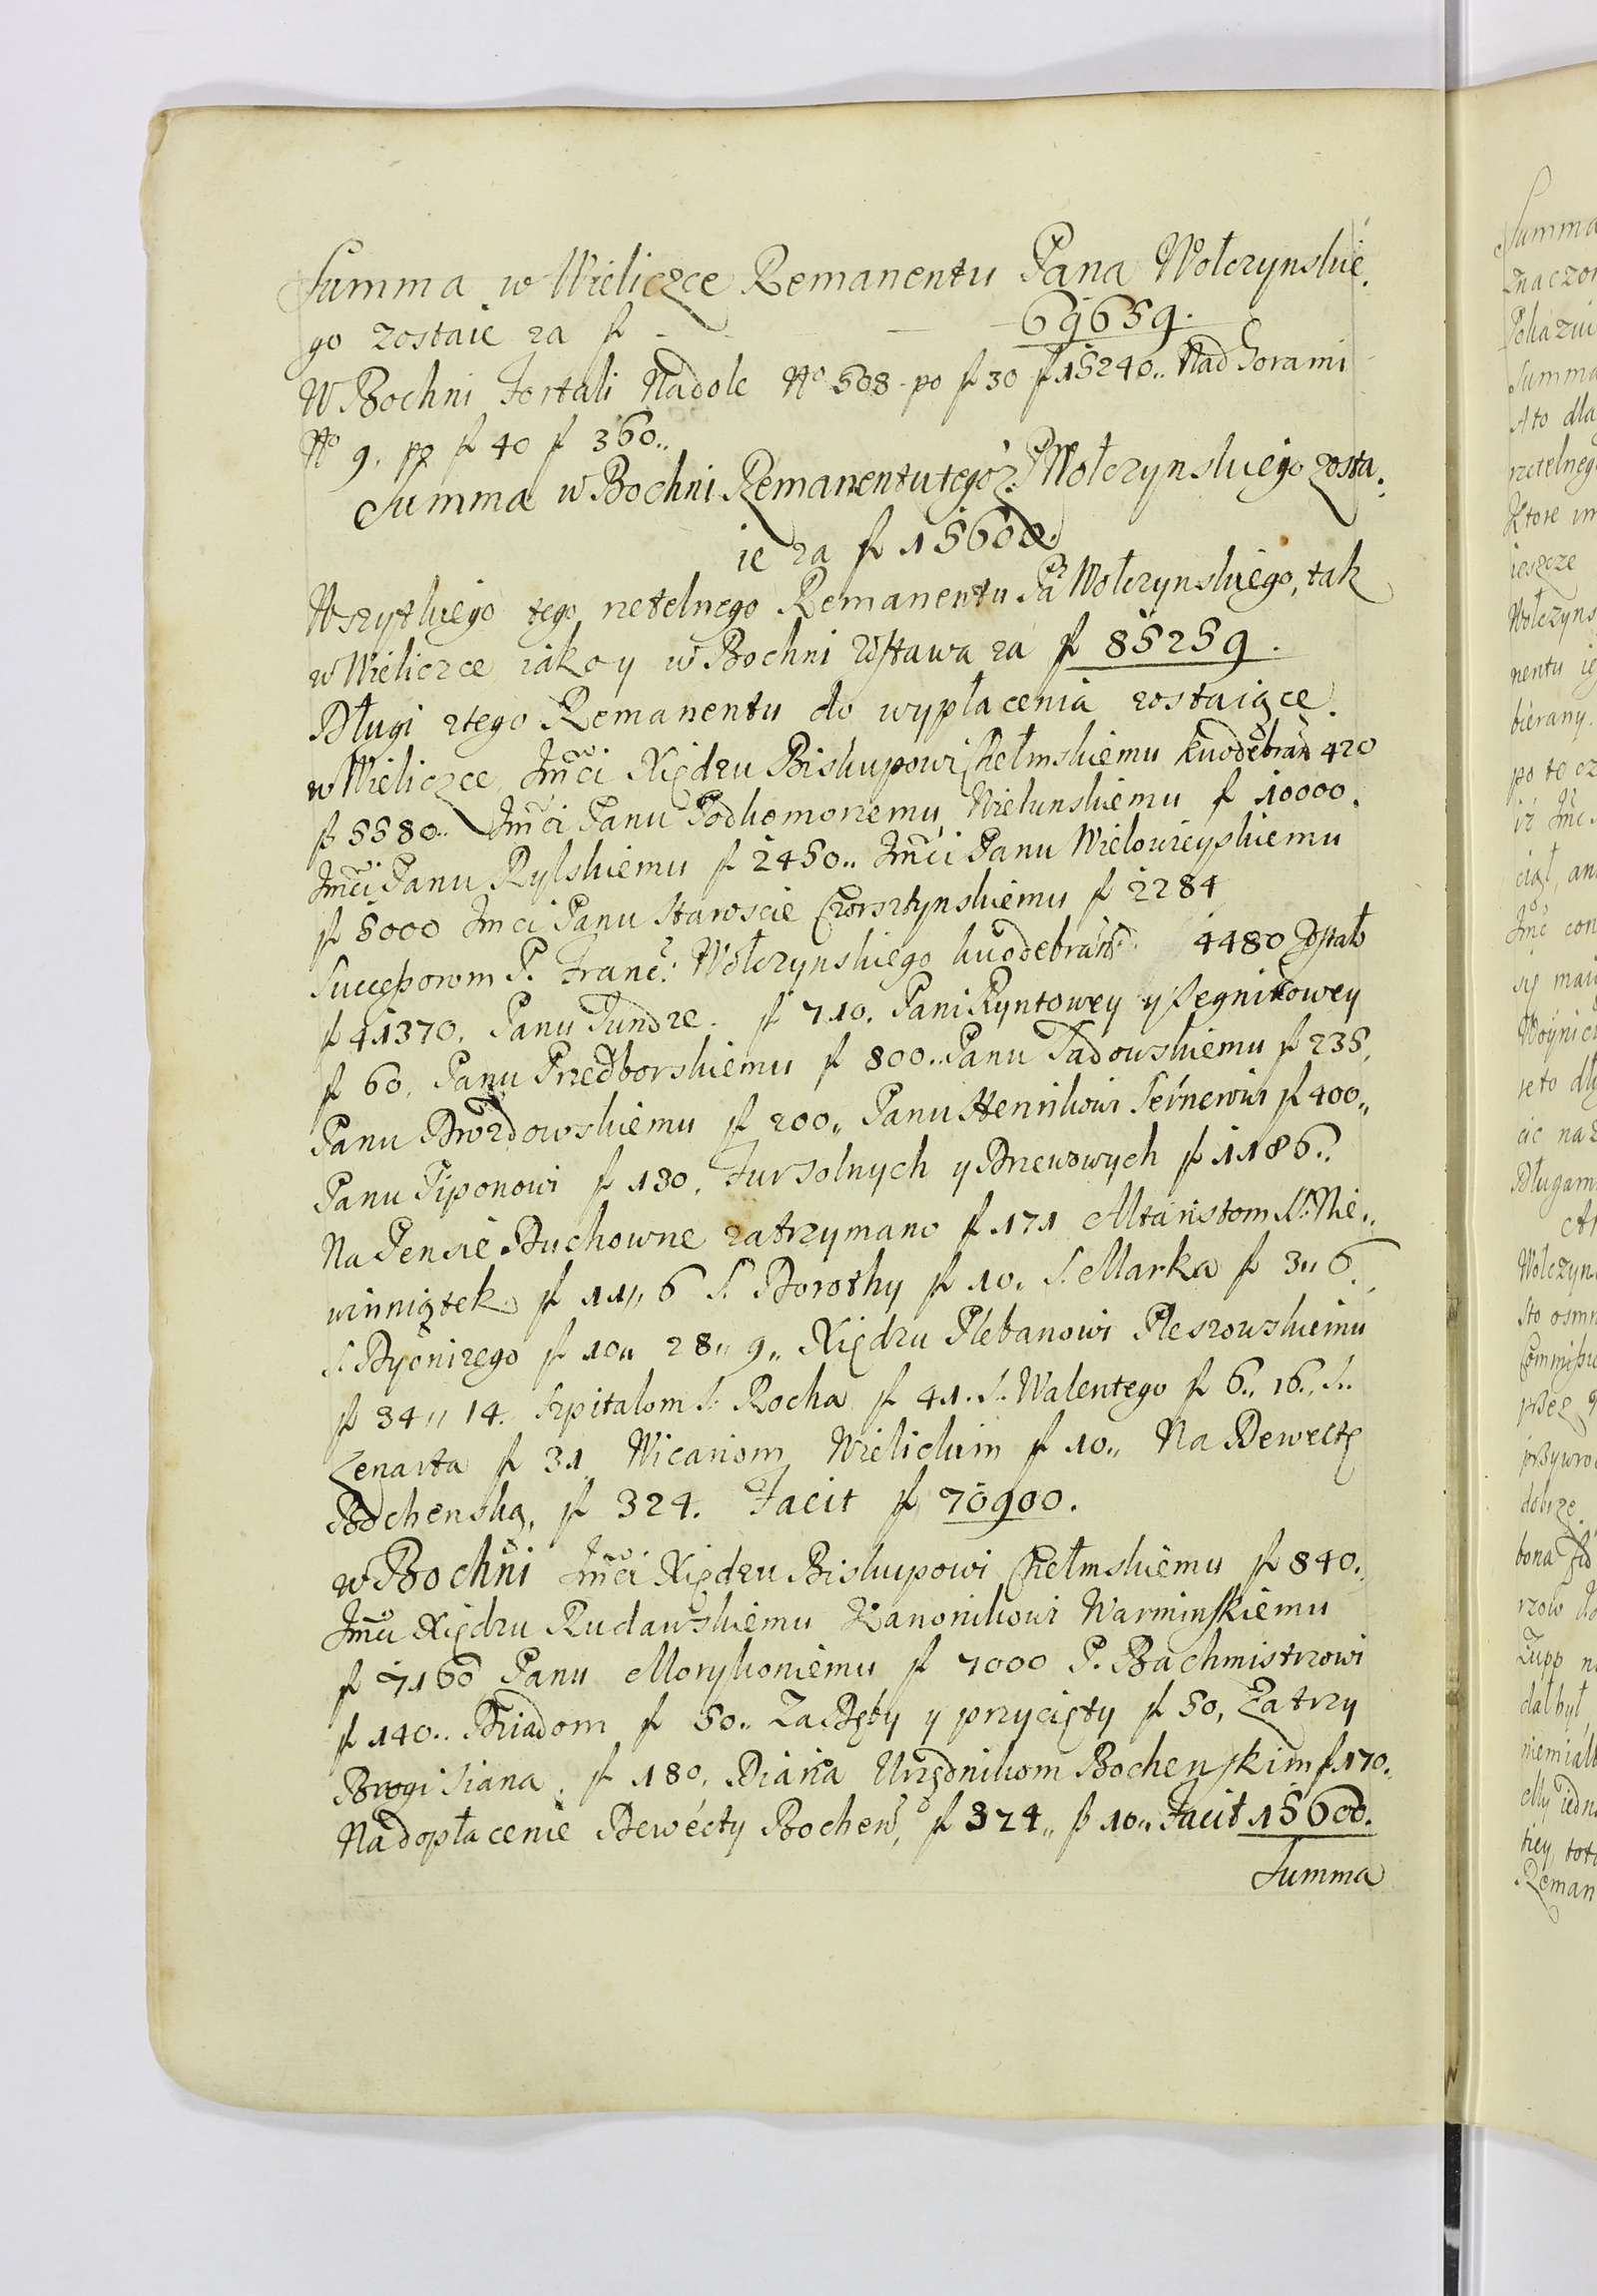 Summa w Wieliczce Remanentu Pana Wołczynskie.
go zostaie za f - - - 69659.
W Bochni Fortali Nadole No 508 - po f 30 f 15240.. Nad Gorami
No 9, po f 40 f 360..
Summa w Bochni Remanentu tegoż P Wołczynskiego zosta.
ie za f 15600.
Wszytkiego tego rzetelnego Remanentu Pa Wołczynskiego, tak
w Wieliczce iako y w Bochni Zostawa za f 85259.
Długi ztego Remanentu do wypłacenia zostaiące.
w Wieliczce Jmci Xiędzu Biskupowi Chełmskiemu kuodebran 420
f 5580.. Jmci Panu Podkomorzemu Wielunskiemu f 10000.
Jmci Panu Rylskiemu f 2450.. Jmci Panu Wielowieyskiemu
f 5000 Jmci Panu Staroscie Czorsztynskiemu f 2284
Successorom P. Franc: Wołczynskiego kuodebran 4480 Zostało
f 41370, Panu Fundze. f 710. Pani Ryntowey y Segnitzowey
f 60, Panu Przedborskiemu f 800.. Panu Ładowskiemu f 235,
Panu Drozdowskiemu f 200,, Panu Henrikowi f 400,,
Panu Piponowi f 130, Fur Solnych y Drzewowych f 1186..
Na Pensie Duchowne zatrzymano f 171 Altaristom SS. Nie..
winniątek f 11,, 6 S. Dorothy f 10,, S. Marka f 3,, 6.
S. Dyonizego f 10,, 28,, 9,, Xiędzu Plebanowi Pleszowskiemu
f 34,, 14. Szpitalom S. Rocha f 41. S. Walentego f 6,, 16,, S..
Lenarta f 31 Wicariom Wielickim f 10,, Na Dewectę
Bochenską, f 324. Facit f 70900.
w Bochni Jmci Xiędzu Biskupowi Chełmskiemu f 840..
Jmci Xiędzu Rudawskiemu Kanonikowi Warminskiemu
f 7160 Panu Morykoniemu f 7000 P. Bachmistrzowi
f 140.. Dziadom f 50.. Za Dęby y przycięty f 50, Za trzy
Brogi Siana f 180. Urzędnikom Bochenskim f 170..
Na dopłacenie Dewecty Bochens, f 324,, f 10,, Facit 15600.
Summa